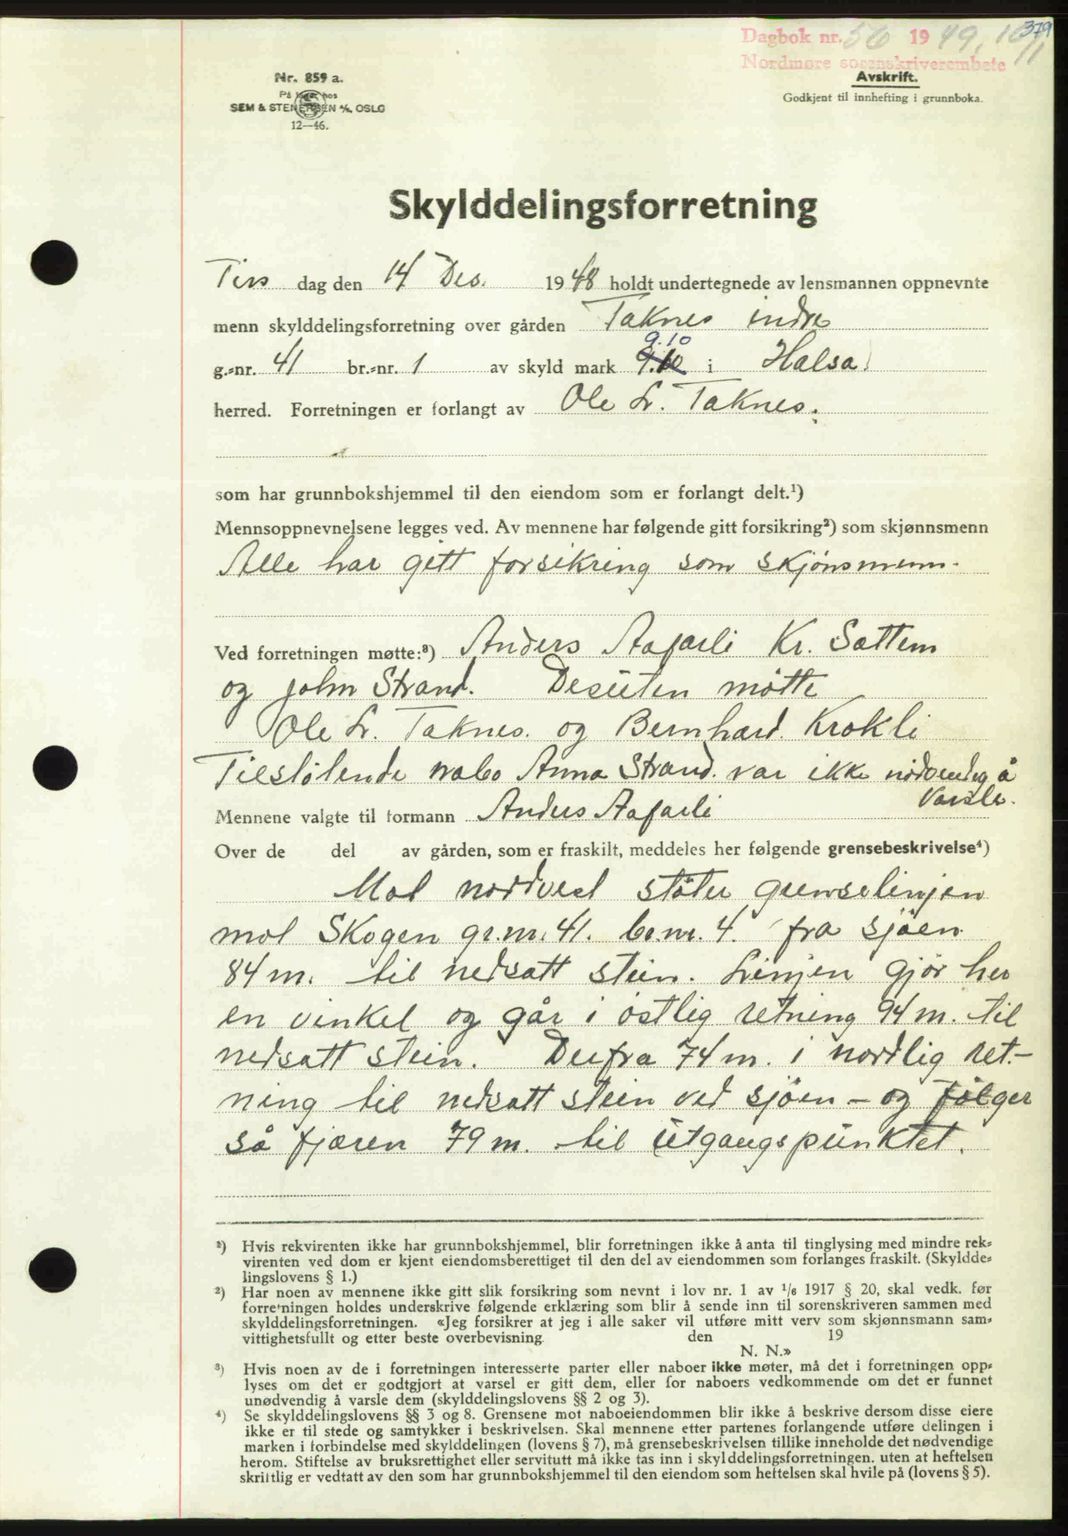 379
Dagbok nr. 56 1949, 10/1
Nordmøre sorenskriverembete
Nr. 859 a.
På lager hos
SEM & STENERSEN A/S, OSLO
12—46.
Avskrift.
Godkjent til innhefting i grunnboka.
Skylddelingsforretning
Tirs dag den 14 Des. 1948 holdt undertegnede av lensmannen oppnevnte
menn skylddelingsforretning over gården Taknes indre
9.10
g.-nr. 41 br.-nr. 1 av skyld mark 9.10 i Halsa
herred. Forretningen er forlangt av Ole L. Taknes.
som har grunnbokshjemmel til den eiendom som er forlangt delt.¹)
Mennsoppnevnelsene legges ved. Av mennene har følgende gitt forsikring²) som skjønnsmenn
Alle har gitt forsikring som skjönsmenn.
Ved forretningen møtte:³) Anders Aafarli Kr. Sættem
og John Strand. Desuten mötte
Ole L. Taknes. og Bernhard Krokli
Tilstötende nabo Anna Strand. var ikke nödvendig å
varsle.
Mennene valgte til formann Anders Aafarli
Over de del av gården, som er fraskilt, meddeles her følgende grensebeskrivelse⁴)
Mot nordvest stöter grenselinjen
mot Skogen gr.nr. 41. br.nr. 4. fra sjöen
84 m. til nedsatt stein. Linjen gjör her
en vinkel og går i östlig retning 94 m. til
nedsatt stein. Derfra 74 m. i nordlig ret-
ning til nedsatt stein ved sjöen – og fölger
så fjæren 79 m. til utgangspunktet.
²) Hvis rekvirenten ikke har grunnbokshjemmel, blir forretningen ikke å anta til tinglysing med mindre rek-
virenten ved dom er kjent eiendomsberettiget til den del av eiendommen som forlanges fraskilt. (Skyldde-
lingslovens § 1.)
²) Har noen av mennene ikke gitt slik forsikring som nevnt i lov nr. 1 av 1/6 1917 § 20, skal vedk. før
forretningen holdes underskrive følgende erklæring som blir å sende inn til sorenskriveren sammen med
skylddelingsforretningen. «Jeg forsikrer at jeg i alle saker vil utføre mitt verv som skjønnsmann sam-
vittighetsfullt og etter beste overbevisning. den 19
N. N.»
³) Hvis noen av de i forretningen interesserte parter eller naboer ikke møter, må det i forretningen opp-
lyses om det er godtgjort at varsel er gitt dem, eller for naboers vedkommende om det er funnet
unødvendig å varsle dem (skylddelingslovens §§ 2 og 3).
⁴) Se skylddelingslovens §§ 3 og 8. Grensene mot naboeiendommen blir ikke å beskrive dersom disse eiere
ikke er til stede og samtykker i beskrivelsen. Skal mennene etter partenes forlangende utføre delingen i
marken i forbindelse med skylddelingen (lovens § 7), må grensebeskrivelsen tillike inneholde det nødvendige
herom. Stiftelse av bruksrettighet eller servitutt må ikke tas inn i skylddelingsforretningen. uten at heftelsen
skriftlig er vedtatt av den som har grunnbokshjemmel til den eiendom som heftelsen skal hvile på (lovens § 5).